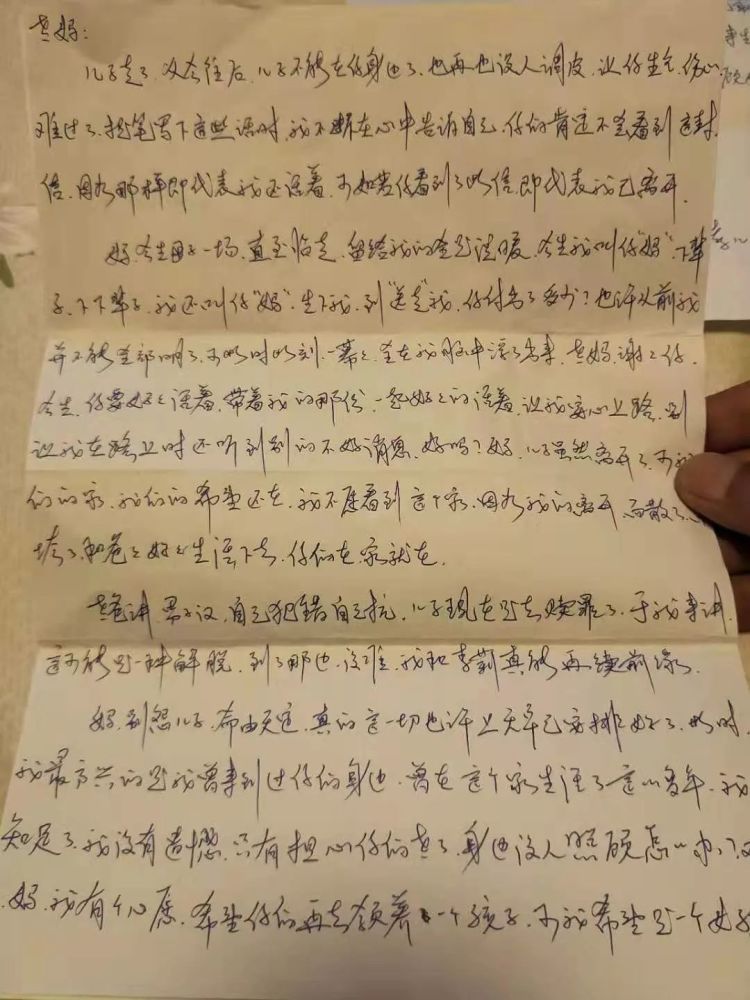 老妈:
儿子走了,从今往后,儿子不能在你身边了,也再也没人调皮,让你生气,伤心
难过了,提笔写下这些话时,我不断在心中告诉自己,你们肯定不会看到这封
信,因为那样即代表我还活着,可如当你看到了此信,即代表我已离开。
妈,今生母子一场,直至临走,留给我的全是温暖,今生我叫你“妈”,下辈
子,下下辈子,我还叫你“妈”。生下我,到“送走”我,你付出了多少?也许从前我
并不能全部明了,可此时此刻,一幕幕全在我脑中浮了出来,老妈,谢谢你,
今生,你要好好活着,带着我的那份,一起好好的活着,让我安心上路,别
让我在路上时还听到别的不好消息,好吗?妈,儿子虽然离开了,可我
们的家,我们的希望还在,我不愿看到这个家,因为我的离开,而散了,
垮了,和爸爸好好生活下去,你们在,家就在。
老爸讲,男子汉,自己犯错自己扛,儿子现在是去赎罪了,于我来讲,
这可能是一种解脱,到了那边,没准,我和李莉真能再续前缘了。
妈,别怨儿子,命由天定,真的这一切也许上天早已安排好了,此时,
我最高兴的是我曾来到过你们的身边,曾在这个家生活了这么多年,我
知足了,我没有遗憾,只有担心你们老了,身边没人照顾怎么办?
妈,我有个心愿,希望你们再去领养一个孩子,可我希望是一个女孩